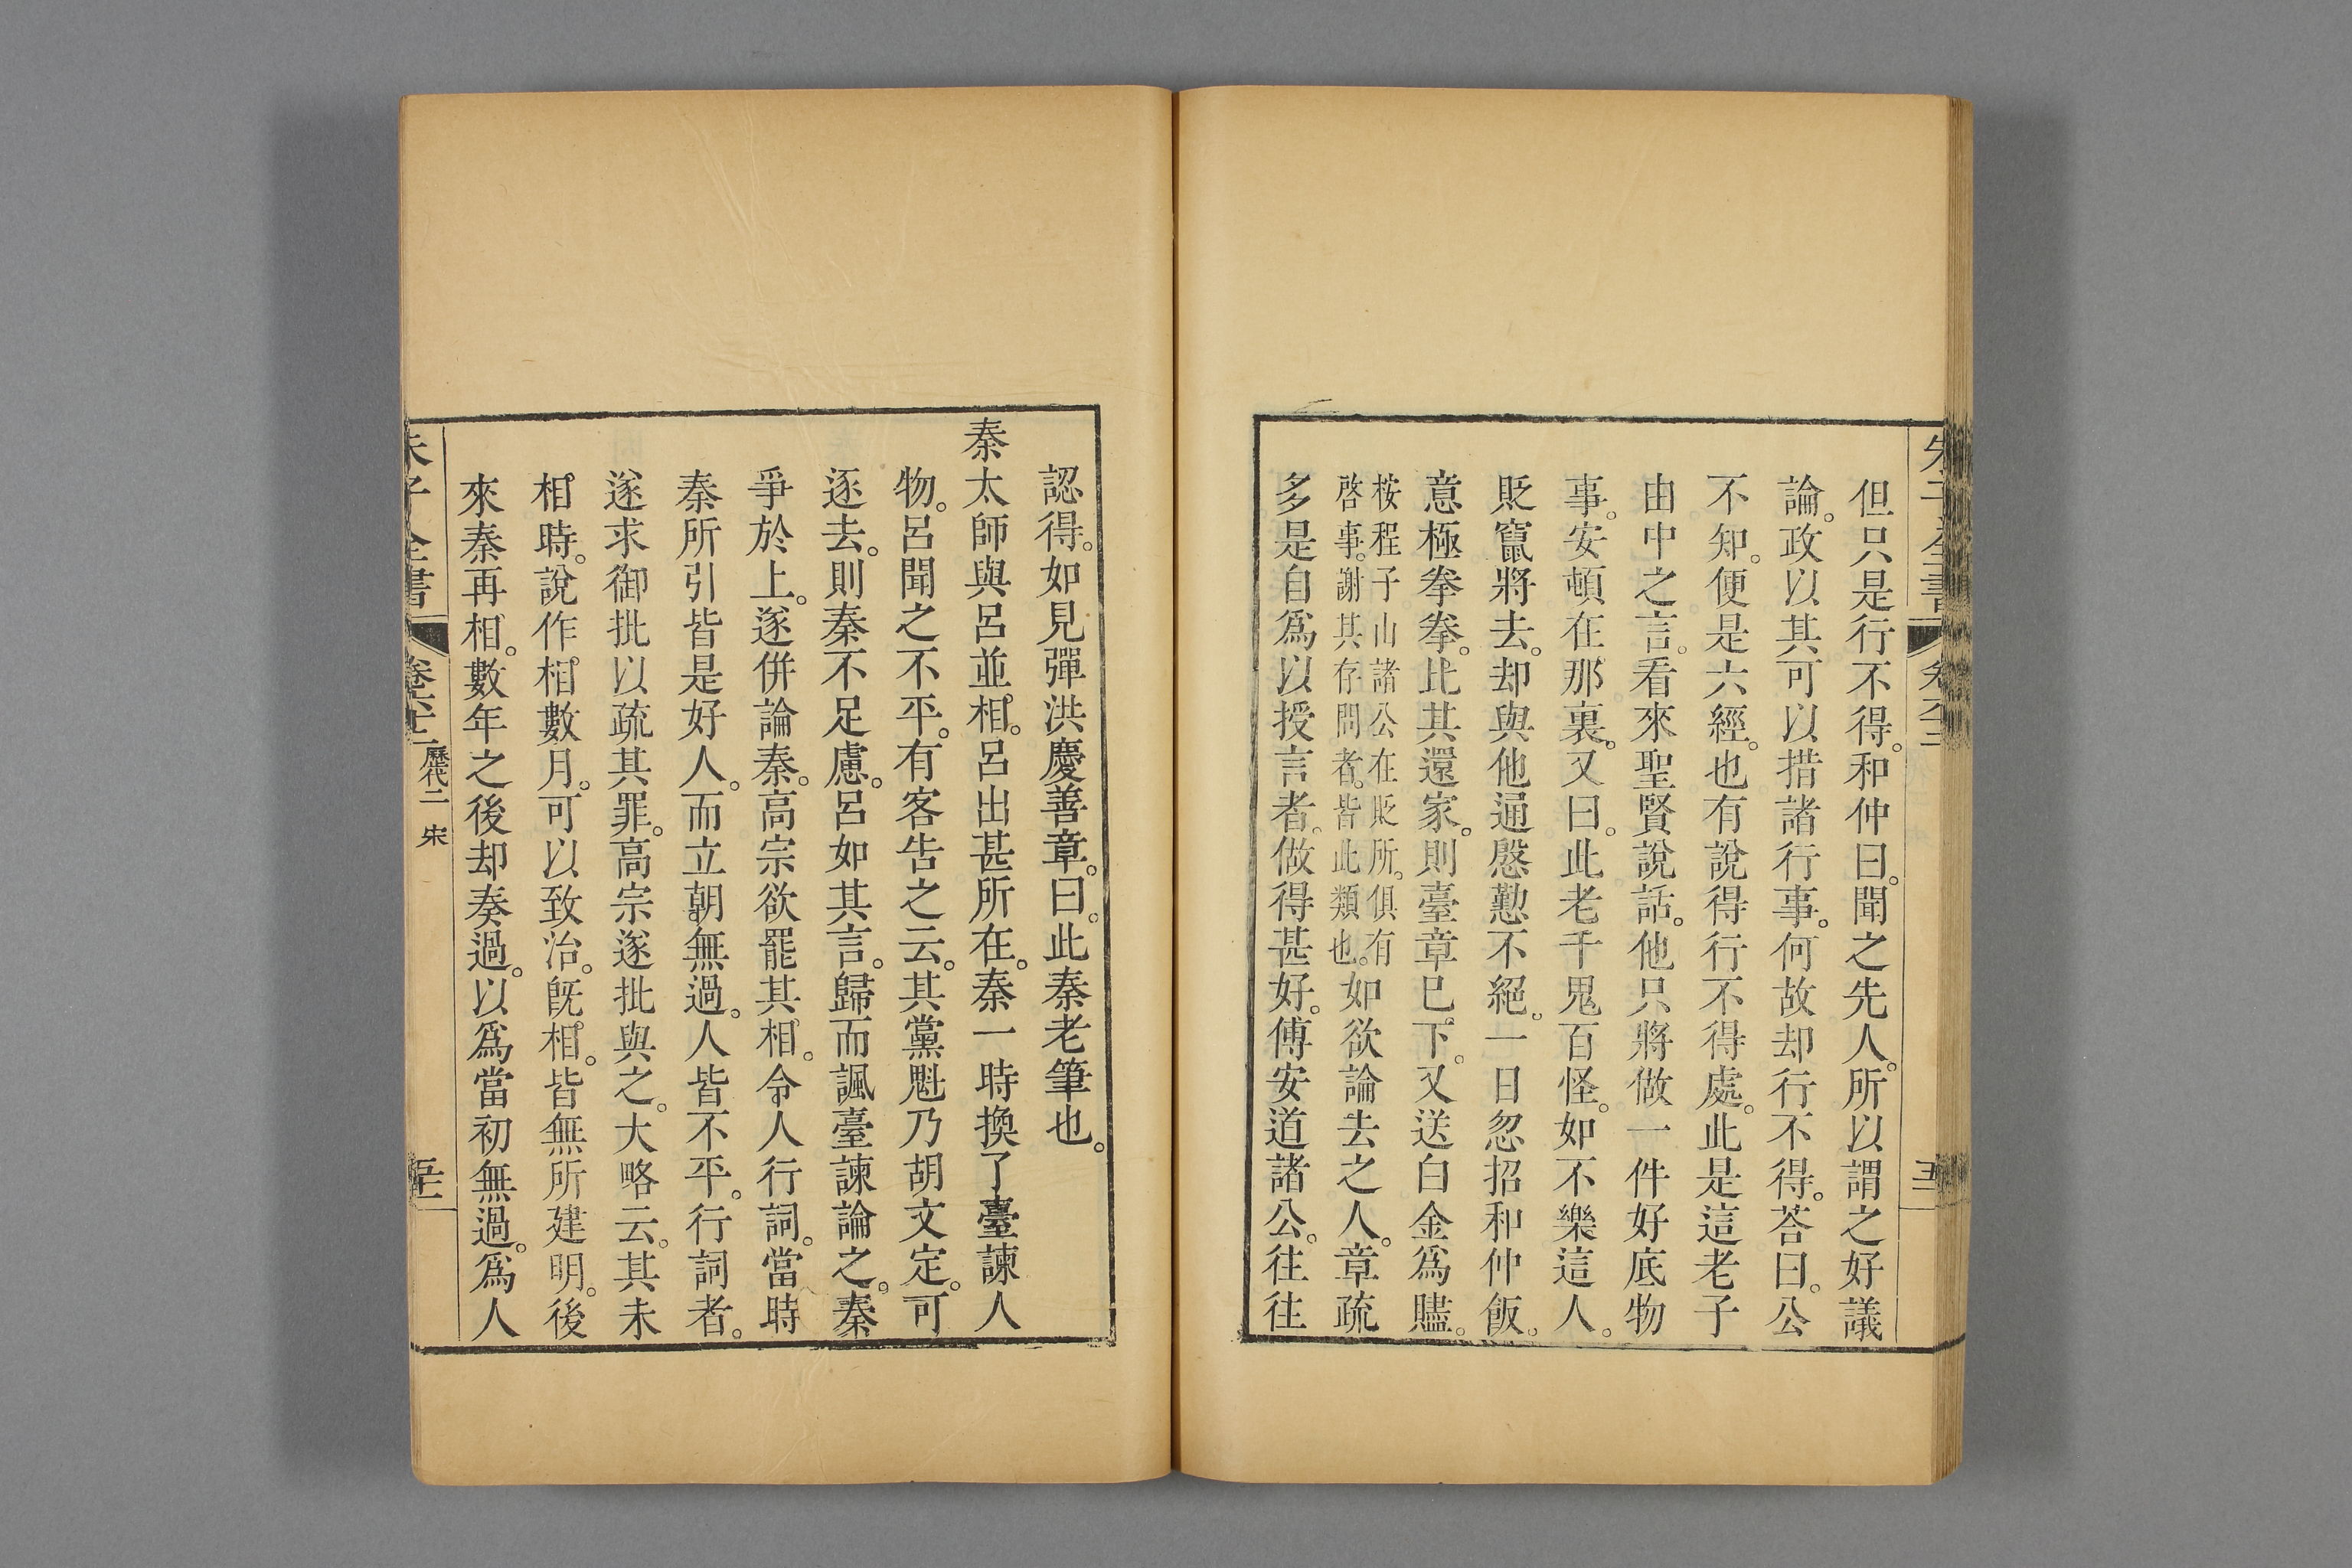 但只是行不得。和仲曰。聞之先人。所以謂之好議
論。政以其可以措諸行事。何故却行不得。荅曰。公
不知。便是六經。也有說得行不得處。此是這老子
由中之言。看來聖賢說話。他只將做一件好底物
事。安頓在那裏。又曰。此老千鬼百怪。如不樂這人。
貶竄將去。却與他通慇懃不絕。一日忽招和仲飯。
意極拳拳。比其還家。則臺章已下。又送白金爲贐。
按程子山諸公在貶所。俱有
啓事。謝其存問者。皆此類也。如欲論去之人。章疏
多是自爲以授言者。做得甚好。傅安道諸公。往往
認得。如見彈洪慶善章。曰。此秦老筆也。
秦太師與呂並相。呂出甚所在。秦一時換了臺諫人
物。呂聞之不平。有客告之云。其黨魁乃胡文定。可
逐去。則秦不足慮。呂如其言。歸而諷臺諫論之。秦
爭於上。遂併論秦。高宗欲罷其相。令人行詞。當時
秦所引皆是好人。而立朝無過。人皆不平。行詞者。
遂求御批以疏其罪。高宗遂批與之。大略云。其未
相時。說作相數月。可以致治。旣相。皆無所建明。後
來秦再相。數年之後却奏過。以爲當初無過。爲人
朱子全書
歷代二 宋